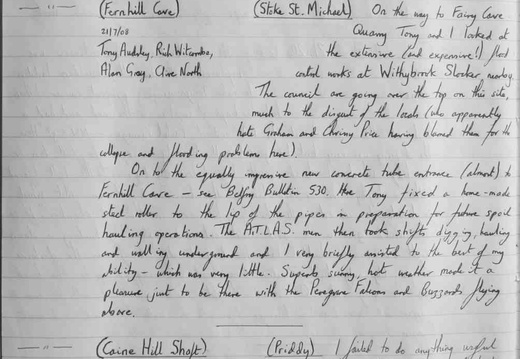 — " — (Fernhill Cave) (Stoke St. Michael) On the way to Fairy Cave
21/7/08 Quarry Tony and I looked at
Tony Audsley, Rich Witcombe, the extensive (and expensive!) flood
Alan Gray, Clive North control works at Withybrook Slocker nearby.
The council are going over the top on this site,
much to the disgust of the locals (who apparently
hate Graham and Chrissy Price having blamed them for the
collapse and flooding problems here).
On to the equally impressive new concrete tube entrance (almost) to
Fernhill Cave – see Belfry Bulletin 530. Here Tony fixed a home-made
steel roller to the lip of the pipes in preparation for future spoil
hauling operations. The A.T.L.A.S. men then took shifts digging, hauling
and walling underground and I very briefly assisted to the best of my
ability – which was very little. Superb sunny, hot weather made it a
pleasure just to be there with the Peregrine Falcons and Buzzards flying
above.
— " — (Caine Hill Shaft) (Priddy) I failed to do anything useful